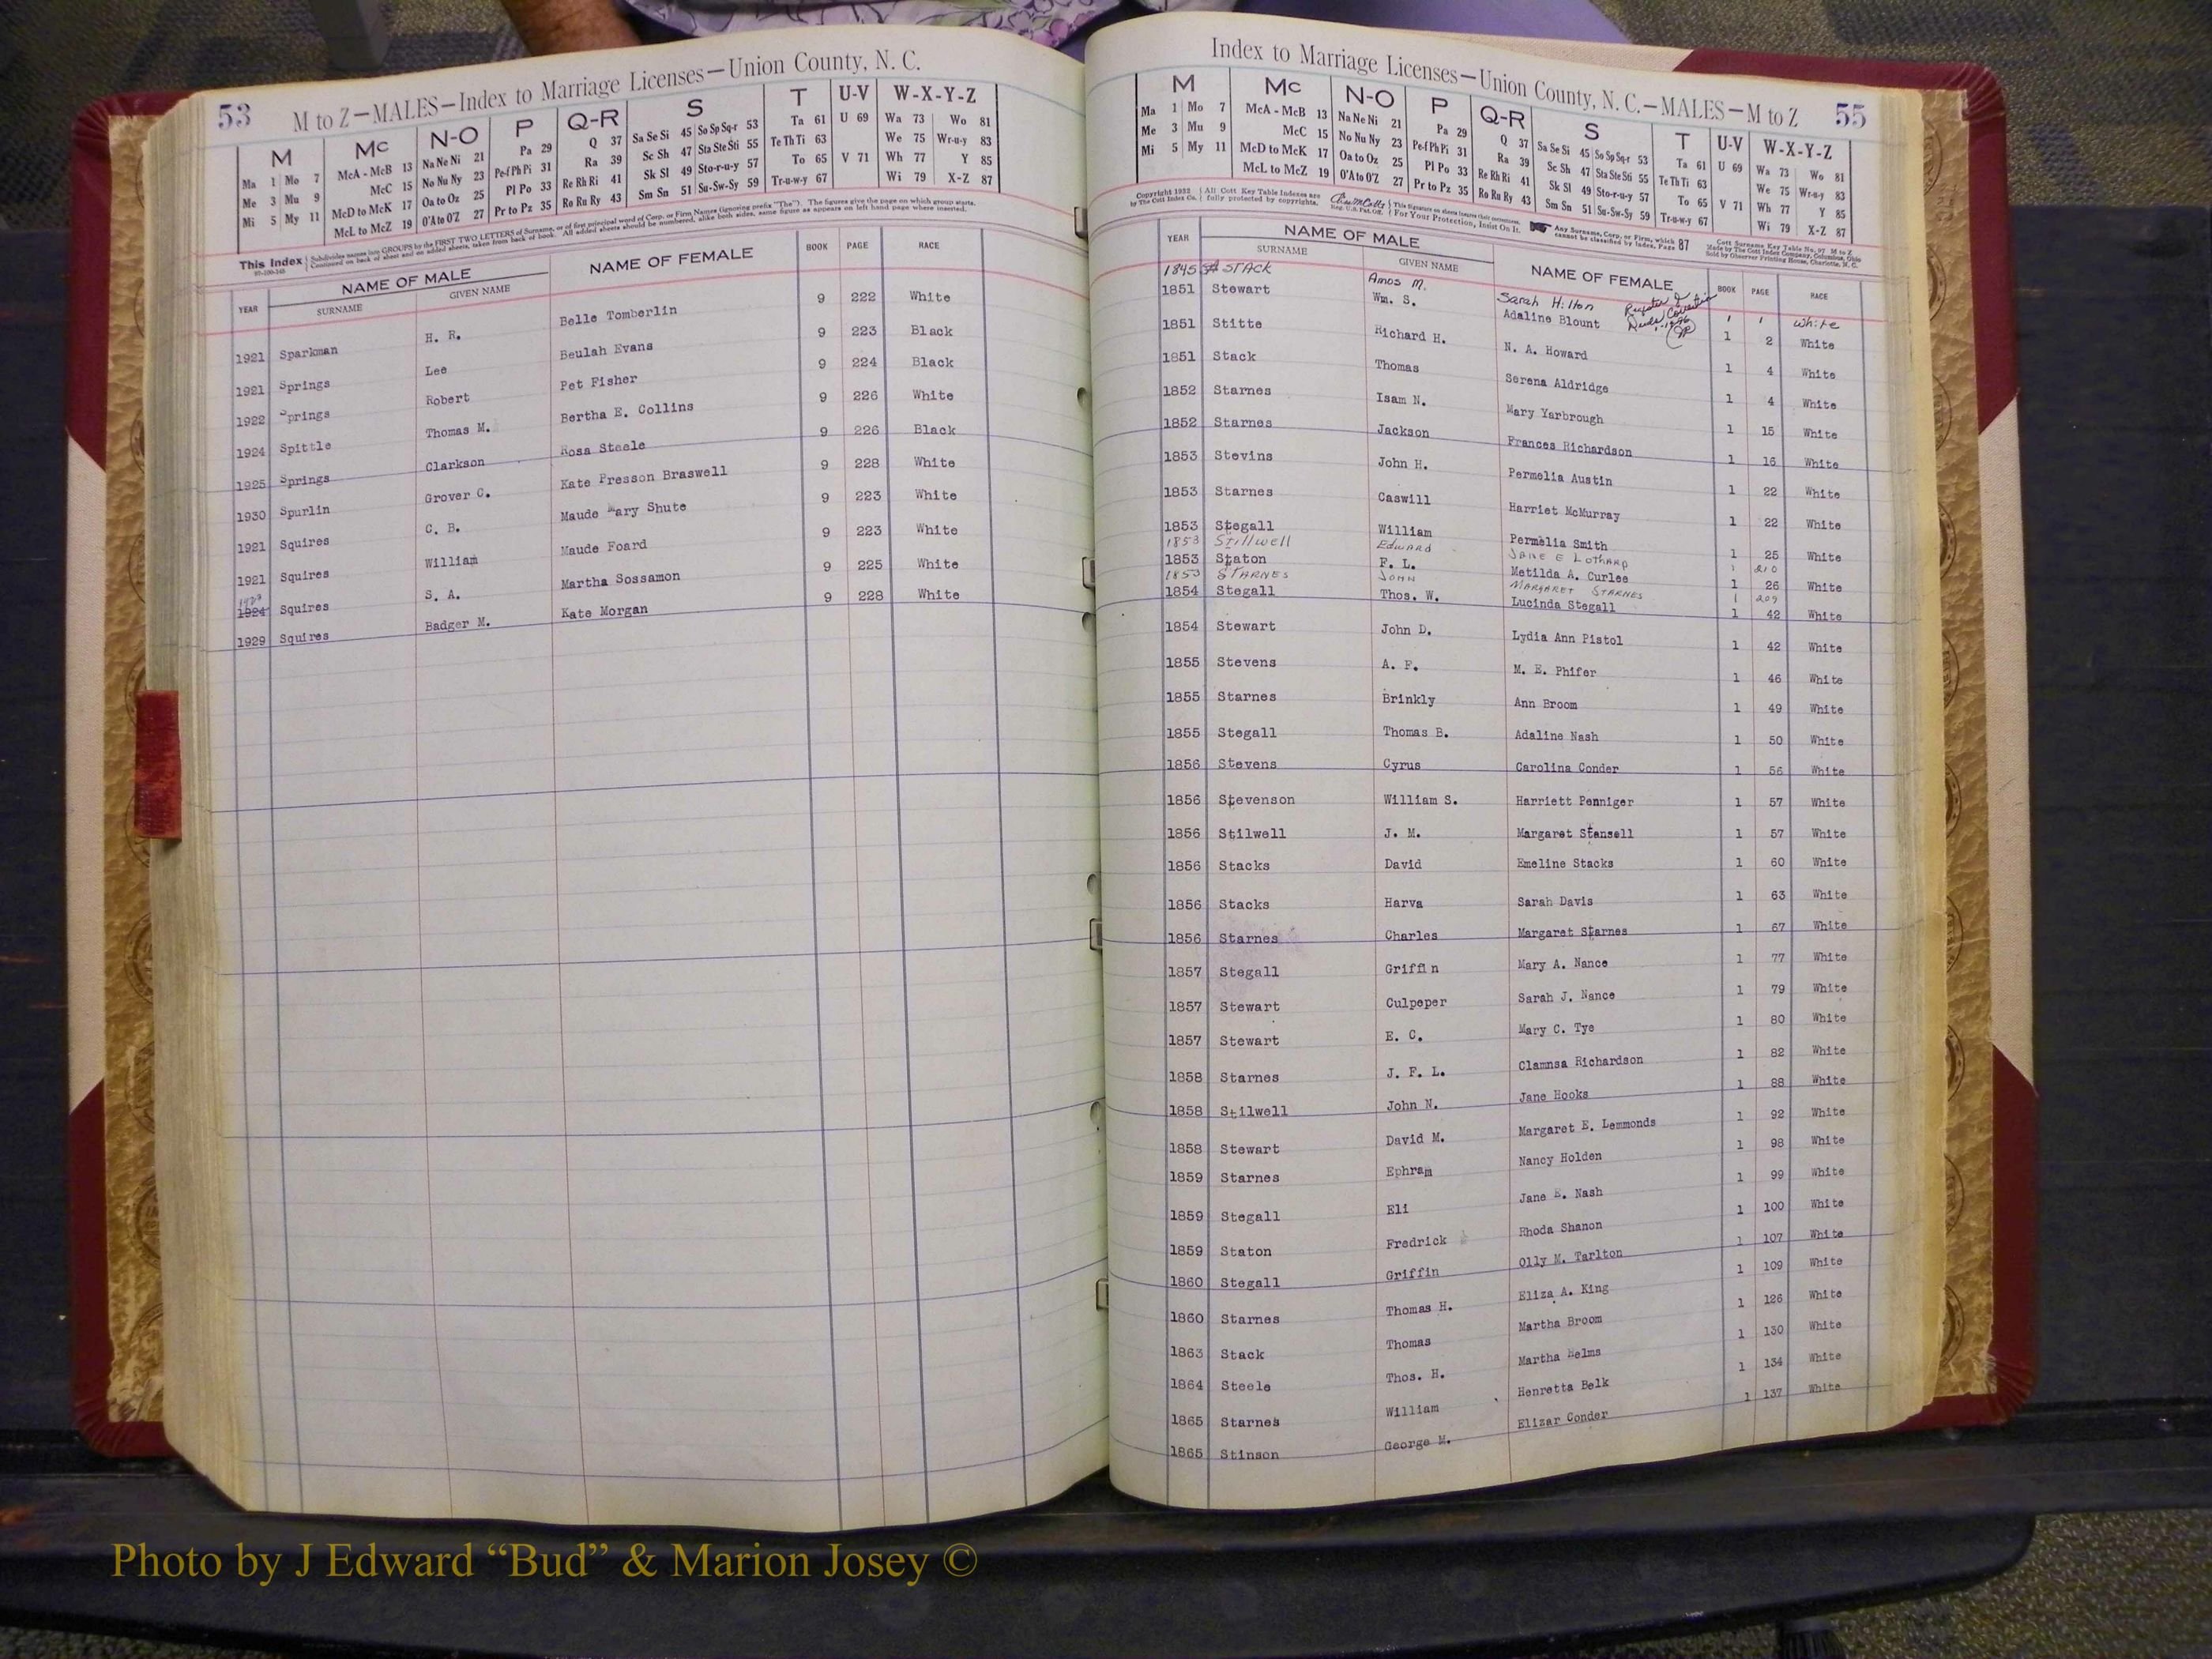 53 M to Z—MALES—Index to Marriage Licenses—Union County, N. C.
M Mc N-O P Q-R S T U-V W-X-Y-Z
Ma 1 Mo 7 McA - McB 13 Na Ne Ni 21 Pa 29 Q 37 Sa Se Si 45 So Sp Sq-r 53 Ta 61 U 69 Wa 73 Wo 81
Me 3 Mu 9 McC 15 No Nu Ny 23 Pe-f Ph Pi 31 Ra 39 Sc Sh 47 Sta Ste Sti 55 Te Th Ti 63 We 75 Wr-u-y 83
Mi 5 My 11 McD to McK 17 Oa to Oz 25 Pl Po 33 Re Rh Ri 41 Sk Sl 49 Sto-r-u-y 57 To 65 V 71 Wh 77 Y 85
McL to McZ 19 O'A to O'Z 27 Pr to Pz 35 Ro Ru Ry 43 Sm Sn 51 Su-Sw-Sy 59 Tr-u-w-y 67 Wi 79 X-Z 87
This Index Subdivides names into GROUPS by the FIRST TWO LETTERS of Surname, or of first principal word of Corp. or Firm Names (Ignoring prefix "The"). The figures give the page on which group starts.
Continued on back of sheet and on added sheets, taken from back of book. All added sheets should be numbered, alike both sides, same figure as appears on left hand page where inserted.
YEAR NAME OF MALE NAME OF FEMALE BOOK PAGE RACE
SURNAME GIVEN NAME
1921 Sparkman H. R. Belle Tomberlin 9 222 White
1921 Springs Lee Beulah Evans 9 223 Black
1922 Springs Robert Pet Fisher 9 224 Black
1924 Spittle Thomas M. Bertha E. Collins 9 226 White
1925 Springs Clarkson Rosa Steele 9 226 Black
1930 Spurlin Grover C. Kate Presson Braswell 9 228 White
1921 Squires C. B. Maude Mary Shute 9 223 White
1921 Squires William Maude Foard 9 223 White
1924 Squires S. A. Martha Sossamon 9 225 White
1929 Squires Badger M. Kate Morgan 9 228 White
Index to Marriage Licenses—Union County, N. C.—MALES—M to Z 55
M Mc N-O P Q-R S T U-V W-X-Y-Z
Ma 1 Mo 7 McA - McB 13 Na Ne Ni 21 Pa 29 Q 37 Sa Se Si 45 So Sp Sq-r 53 Ta 61 U 69 Wa 73 Wo 81
Me 3 Mu 9 McC 15 No Nu Ny 23 Pe-f Ph Pi 31 Ra 39 Sc Sh 47 Sta Ste Sti 55 Te Th Ti 63 We 75 Wr-u-y 83
Mi 5 My 11 McD to McK 17 Oa to Oz 25 Pl Po 33 Re Rh Ri 41 Sk Sl 49 Sto-r-u-y 57 To 65 V 71 Wh 77 Y 85
McL to McZ 19 O'A to O'Z 27 Pr to Pz 35 Ro Ru Ry 43 Sm Sn 51 Su-Sw-Sy 59 Tr-u-w-y 67 Wi 79 X-Z 87
Copyright 1932 by The Cott Index Co. All Cott Key Table Indexes are fully protected by copyrights. Reg. U.S. Pat. Off. For Your Protection, Insist On It. Any Surname, Corp. or Firm, which cannot be classified by Index, Page 87
YEAR NAME OF MALE NAME OF FEMALE BOOK PAGE RACE
SURNAME GIVEN NAME
1845 STACK Amos M. Sarah Hilton 1 1 White
1851 Stewart Wm. S. Adaline Blount 1 2 White
1851 Stitte Richard H. N. A. Howard 1 4 White
1851 Stack Thomas Serena Aldridge 1 4 White
1852 Starnes Isam N. Mary Yarbrough 1 15 White
1852 Starnes Jackson Frances Richardson 1 16 White
1853 Stevins John H. Permelia Austin 1 22 White
1853 Starnes Caswill Harriet McMurray 1 22 White
1853 Stegall William Permelia Smith 1 25 White
1853 Stillwell Edward JANE E LOTHARP 1 210
1853 Staton F. L. Metilda A. Curlee 1 26 White
1853 STARNES JOHN MARGARET STARNES 1 209
1854 Stegall Thos. W. Lucinda Stegall 1 42 White
1854 Stewart John D. Lydia Ann Pistol 1 42 White
1855 Stevens A. F. M. E. Phifer 1 46 White
1855 Starnes Brinkly Ann Broom 1 49 White
1855 Stegall Thomas B. Adaline Nash 1 50 White
1856 Stevens Cyrus Carolina Conder 1 56 White
1856 Stevenson William S. Harriett Penniger 1 57 White
1856 Stilwell J. M. Margaret Stansell 1 57 White
1856 Stacks David Emeline Stacks 1 60 White
1856 Stacks Harva Sarah Davis 1 63 White
1856 Starnes Charles Margaret Starnes 1 67 White
1857 Stegall Griffin Mary A. Nance 1 77 White
1857 Stewart Culpeper Sarah J. Nance 1 79 White
1857 Stewart E. C. Mary C. Tye 1 80 White
1858 Starnes J. F. L. Clamnsa Richardson 1 82 White
1858 Stilwell John N. Jane Hooks 1 88 White
1858 Stewart David M. Margaret E. Lemmonds 1 92 White
1859 Starnes Ephram Nancy Holden 1 98 White
1859 Stegall Eli Jane E. Nash 1 99 White
1859 Staton Fredrick Rhoda Shanon 1 100 White
1860 Stegall Griffin Olly M. Tarlton 1 107 White
1860 Starnes Thomas H. Eliza A. King 1 109 White
1863 Stack Thomas Martha Broom 1 126 White
1864 Steele Thos. H. Martha Helms 1 130 White
1865 Starnes William Henretta Belk 1 134 White
1865 Stinson George M. Elizar Conder 1 137 White
Photo by J Edward “Bud” & Marion Josey ©